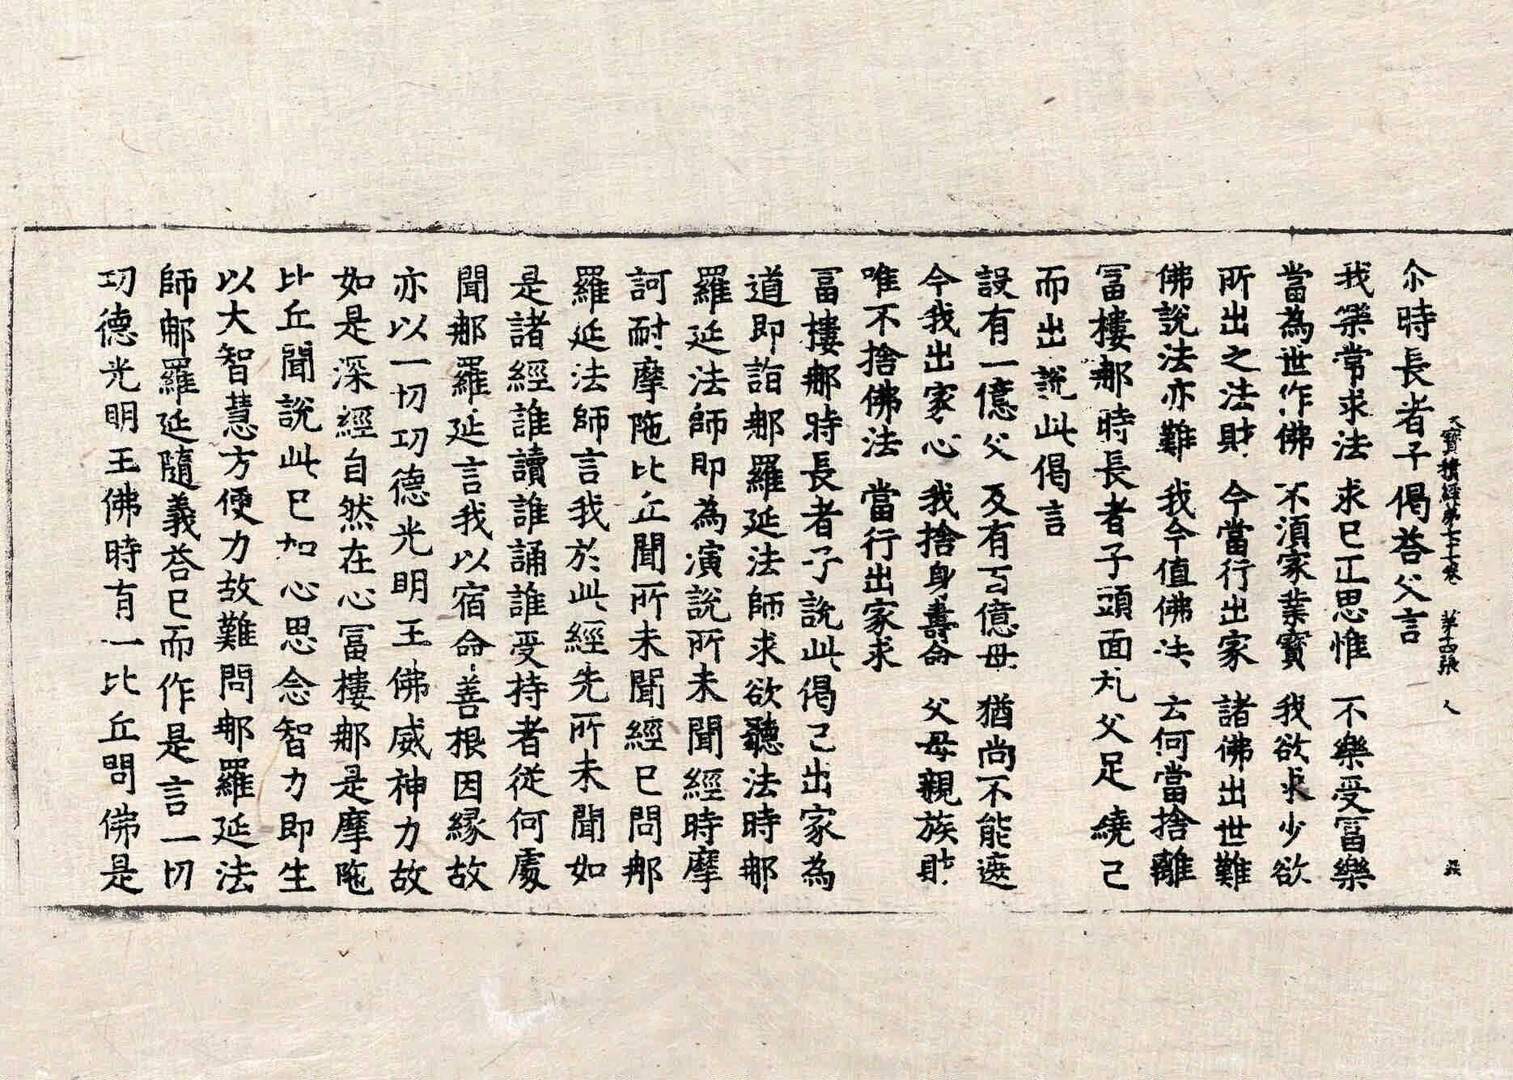 大寶積經第七十七卷　第十四張　人
尒時長者子偈荅父言
我樂常求法　求已正思惟　不樂受冨樂
當為世作佛　不湏家業寶　我欲求少欲
所出之法財　今當行出家　諸佛出世難
佛說法亦難　我今值佛法　云何當捨離
冨樓那時長者子頭面礼父足繞已
而出說此偈言
設有一億父　及有百億母　猶尚不能遮
今我出家心　我捨身壽命　父母親族財
唯不捨佛法　當行出家求
冨樓那時長者子說此偈已出家為
道即詣那羅延法師求欲聽法時那
羅延法師即為演說所未聞經時摩
訶耐摩陁比丘聞所未聞經已問那
羅延法師言我於此經先所未聞如
是諸經誰讀誰誦誰受持者從何處
聞那羅延言我以宿命善根因緣故
亦以一切功德光明王佛威神力故
如是深經自然在心冨樓那是摩陁
比丘聞說此已如心思念智力即生
以大智慧方便力故難問那羅延法
師那羅延隨義荅已而作是言一切
功德光明王佛時有一比丘問佛是